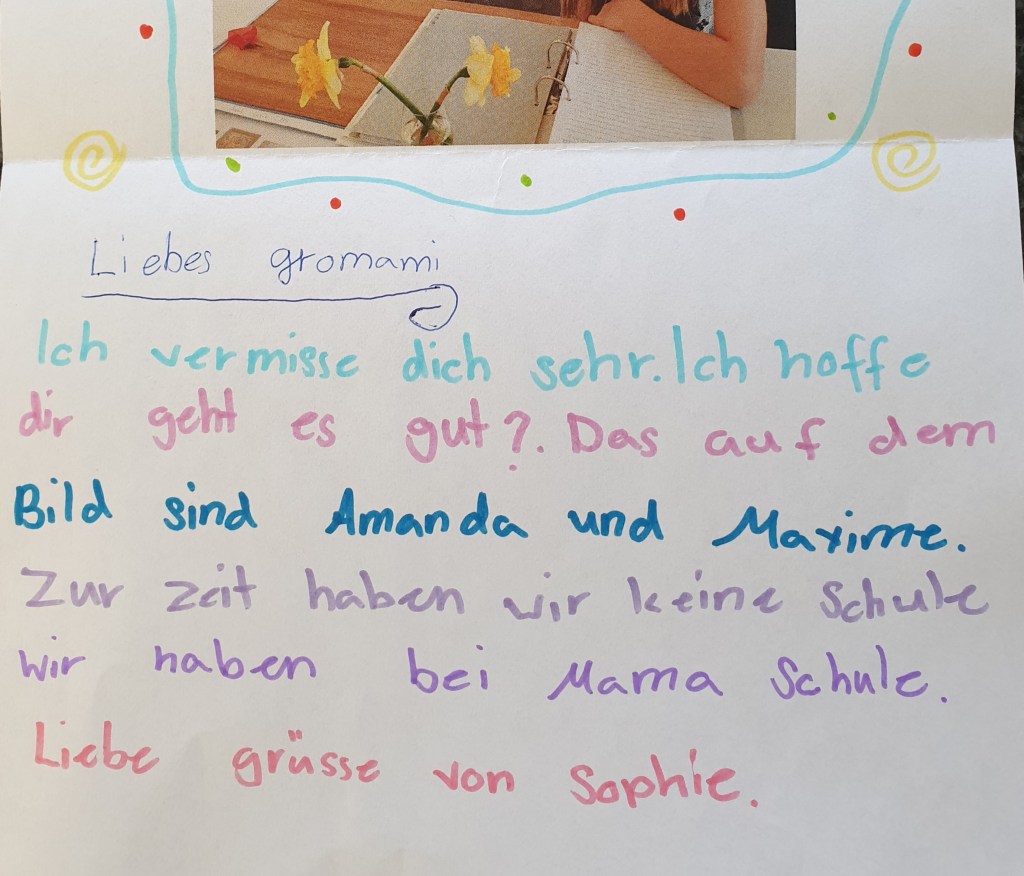 Liebes gromami
Ich vermisse dich sehr. Ich hoffe
dir geht es gut?. Das auf dem
Bild sind Amanda und Maxime.
Zur zeit haben wir keine Schule
wir haben bei Mama Schule.
Liebe grüsse von Sophie.